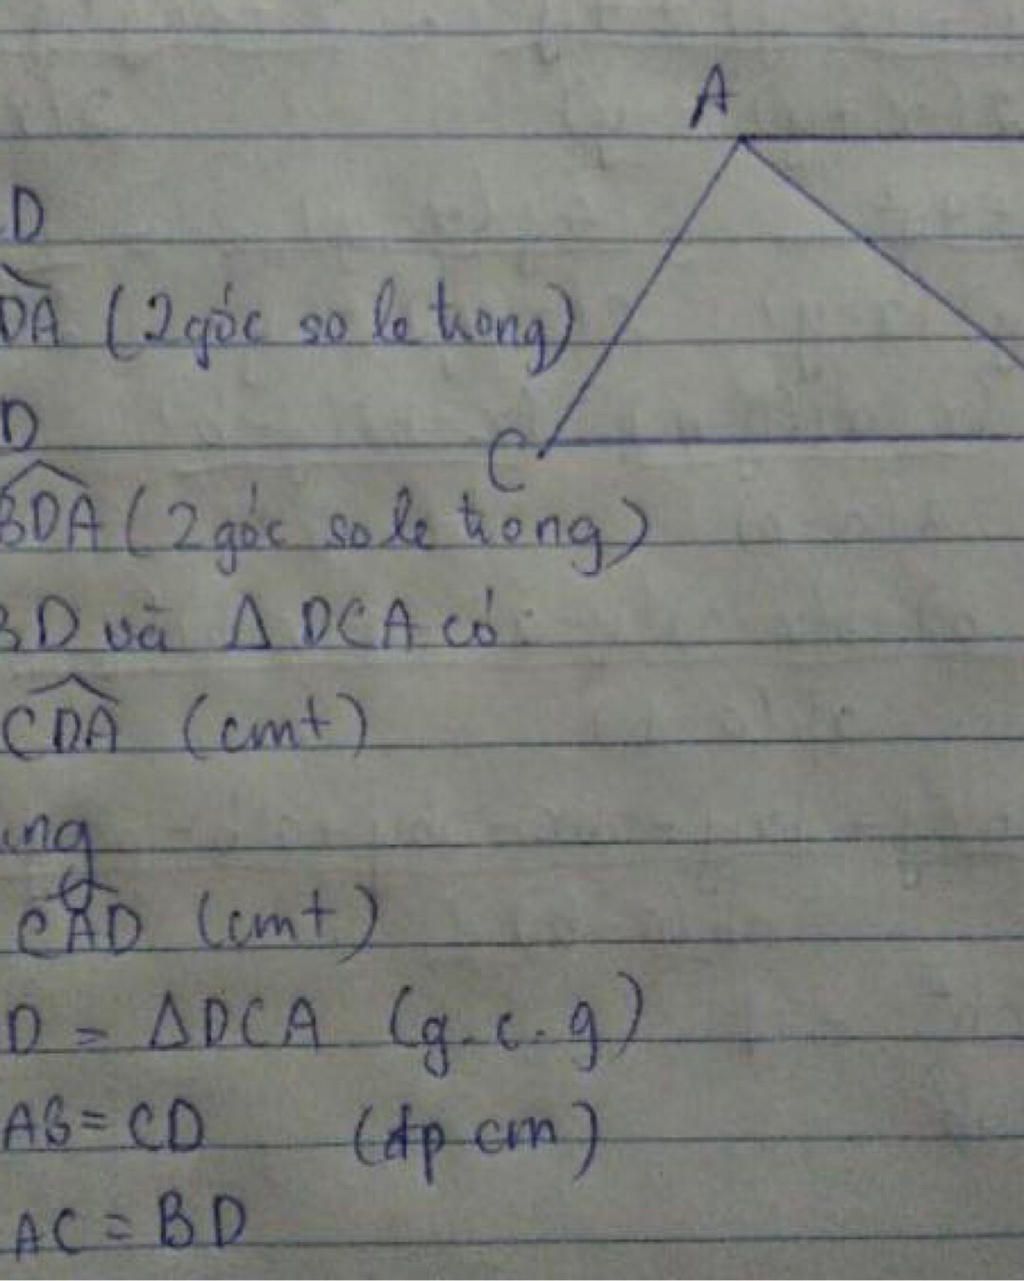 A
D
DA (2 góc so le trong)
D
C
BDA (2 góc so le trong)
BD và Δ DCA có:
CDA (cmt)
ung
CAD (cmt)
D = ΔDCA (g.c.g)
AB = CD (đpcm)
AC = BD